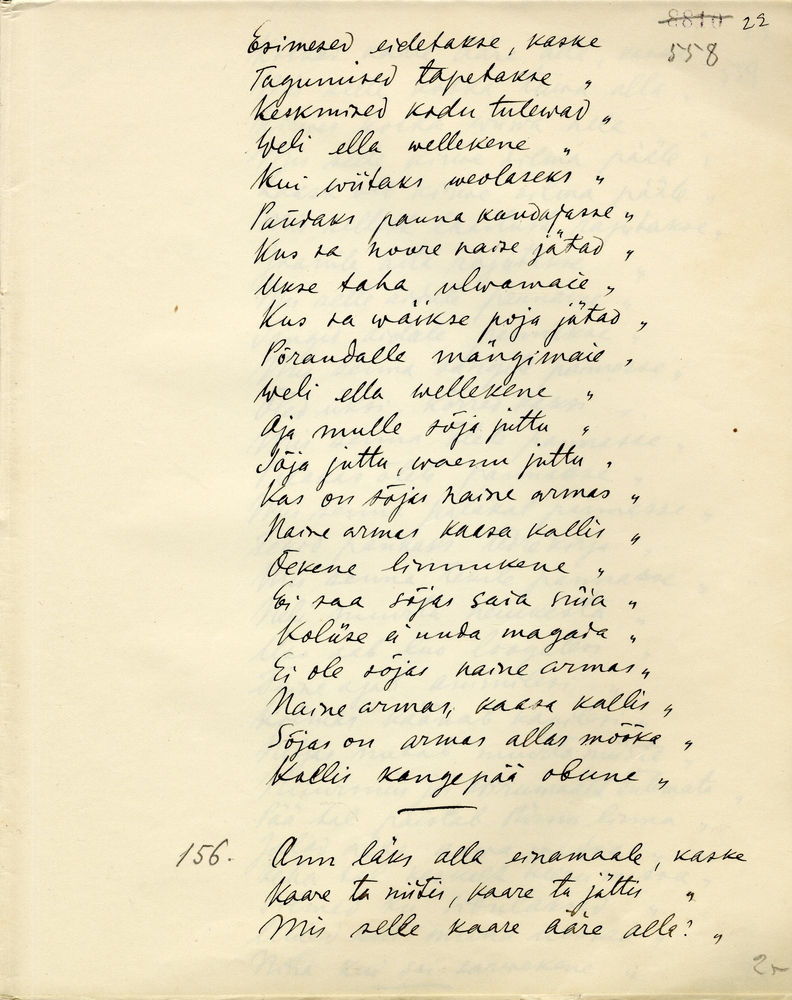 8810 22
558
Esimesed eidetakse, kaske
Tagumised tapetakse "
Keskmised kodu tulewad "
Weli ella wellekene "
Kui wiitaks weolaseks "
Pandaks pauna kandajasse "
Kus sa noore naise jätad "
Ukse taha ulwamaie "
Kus sa wäikse poja jätad "
Põrandalle mängimaie "
Weli ella wellekene "
Aja mulle sõja juttu "
Sõja juttu, waenu juttu "
Kas on sõjas naine armas "
Naine armas kaasa kallis "
Õekene linnukene "
Ei saa sõjas saia süia "
Koliise ei unda magada "
Ei ole sõjas naine armas "
Naine armas, kaasa kallis "
Sõjas on armas allas mõõka "
Kallis kangepää obune "
156. Ann läks alla einamaale, kaske
Kaare ta niitis, kaare ta jättis "
Mis selle kaare ääre alla? "